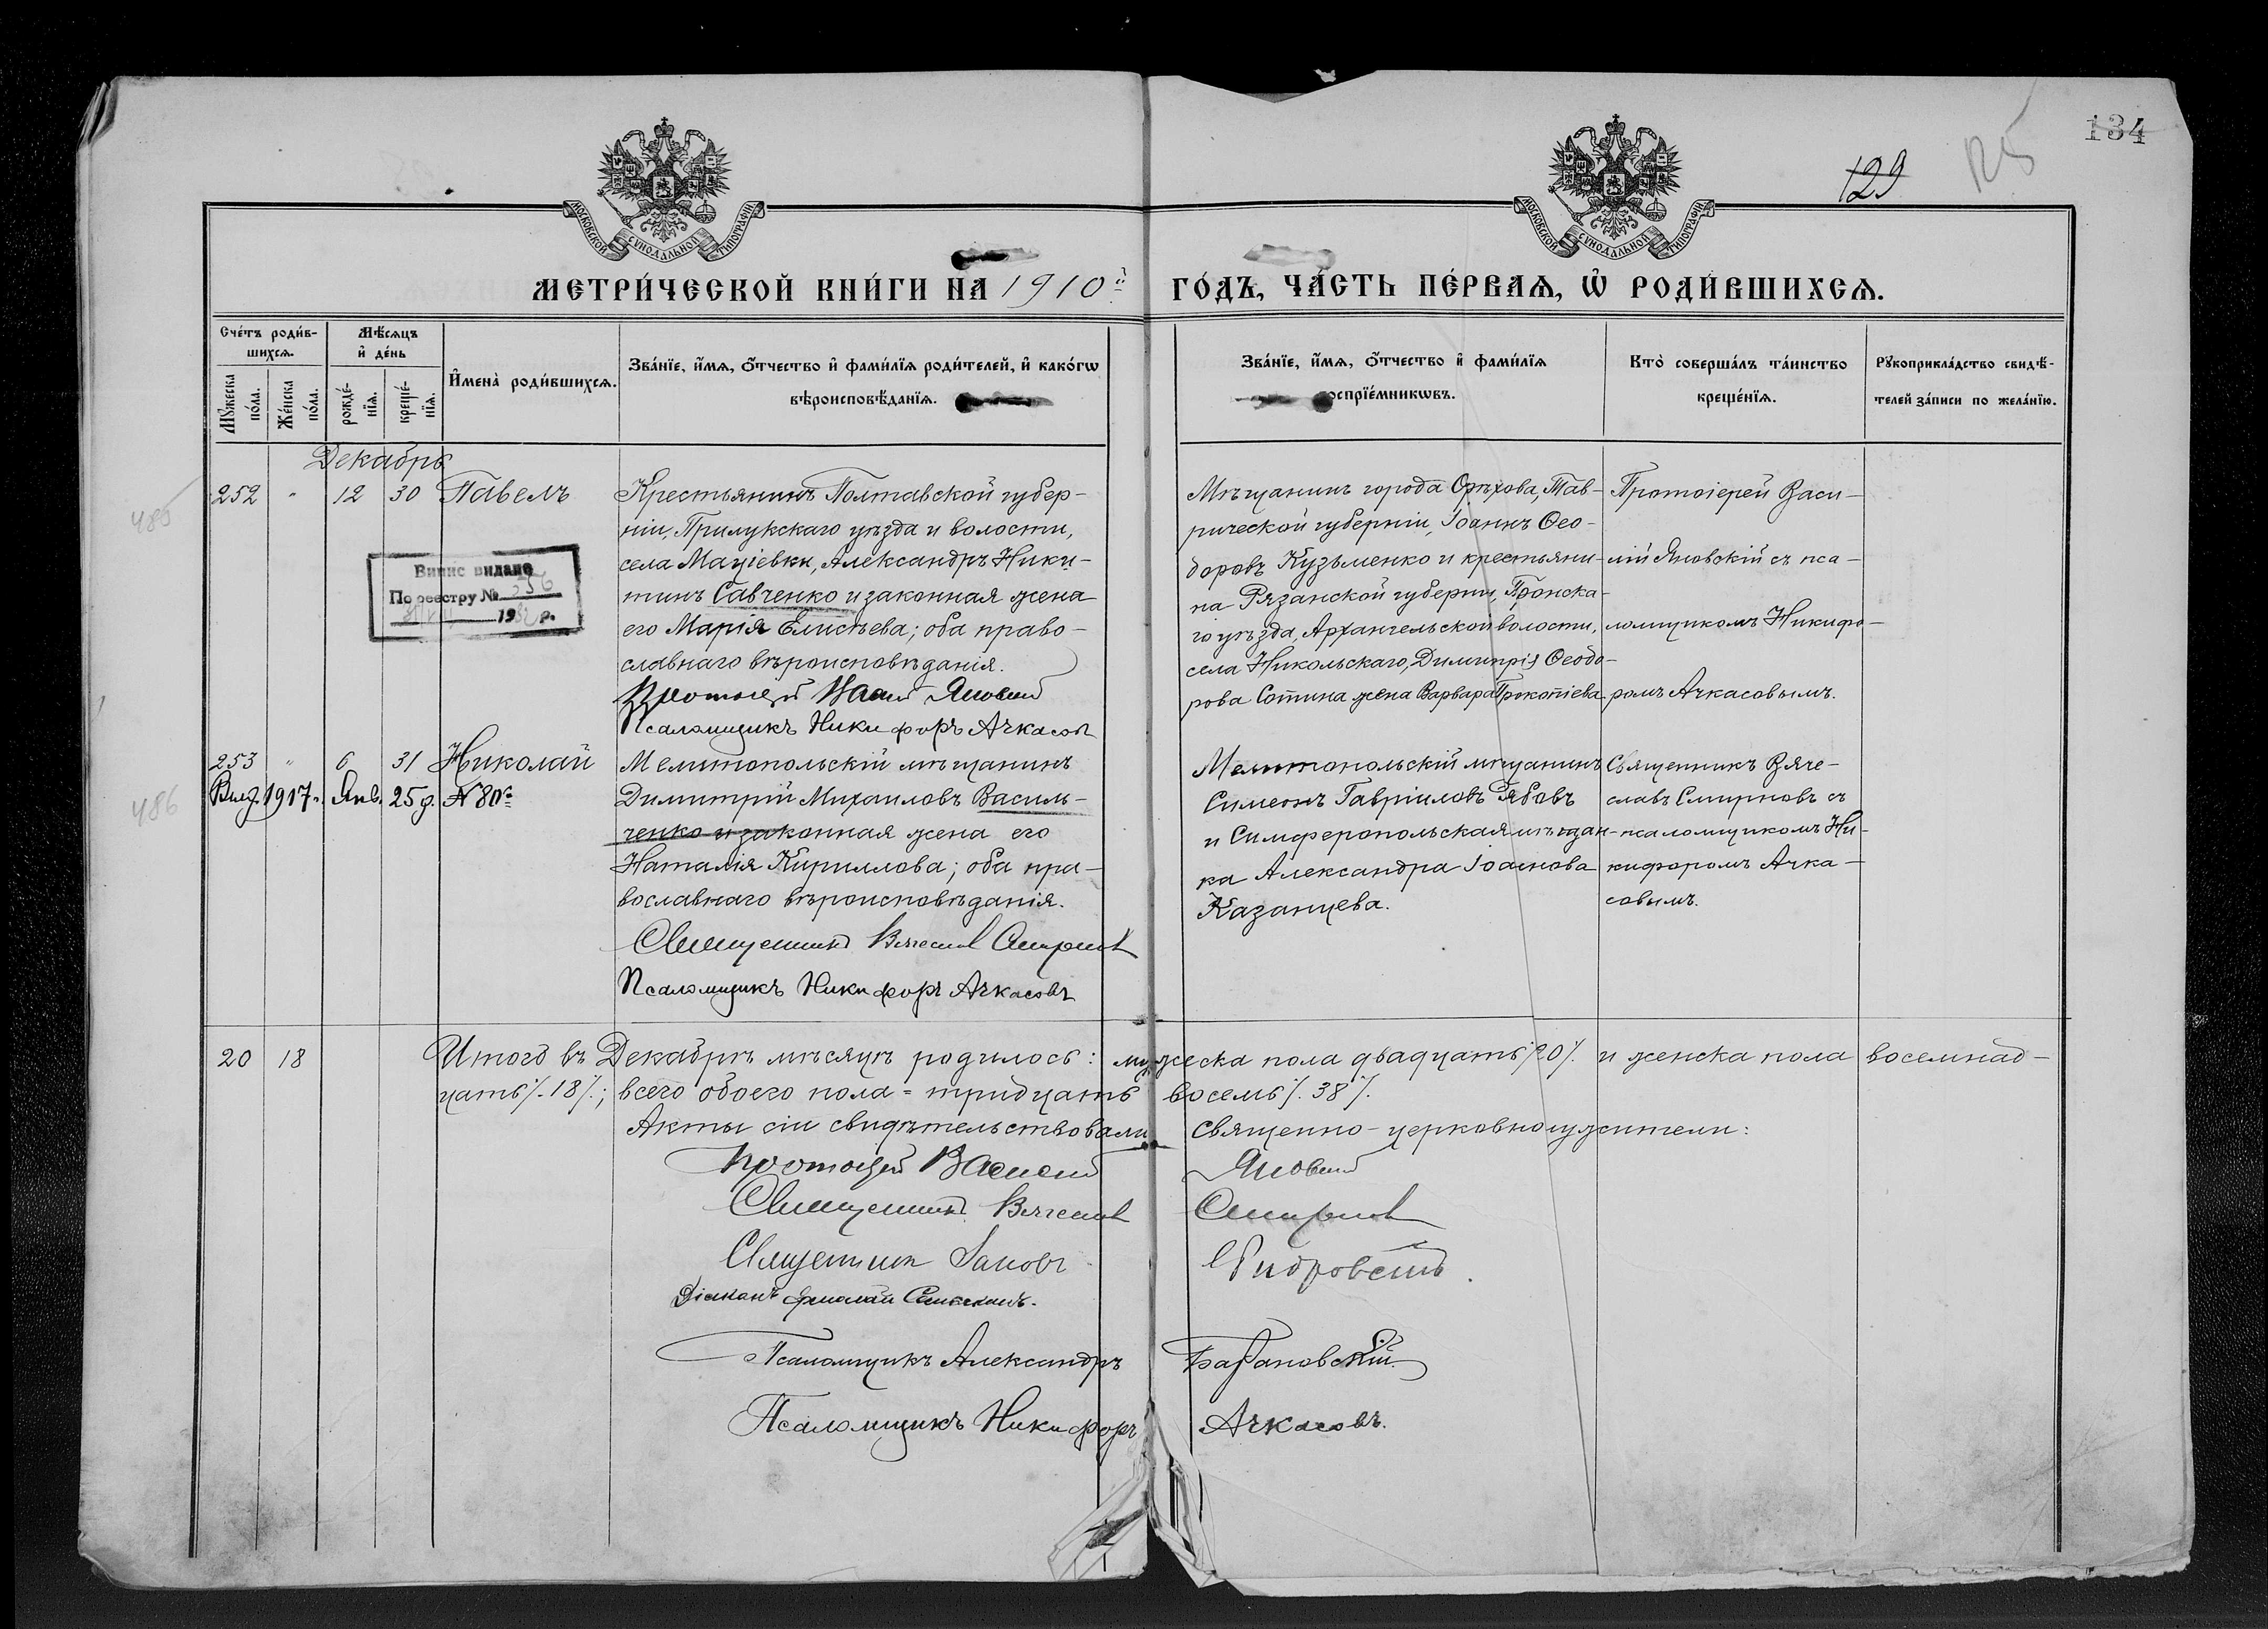 134
129
125
МОСКОВСКОЙ СУНОДАЛЬНОЙ ТИПОГРАФІИ
МОСКОВСКОЙ СУНОДАЛЬНОЙ ТИПОГРАФІИ
МЕТРИ́ЧЕСКОЙ КНИ́ГИ НА 1910й ГО́ДЪ, ЧА́СТЬ ПЕ́РВАѦ, Ѡ҆ РОДИ́ВШИХСѦ.
Сче́тъ роди́в-
шихсѧ.
Мѣ́сѧцъ
и҆ де́нь
Мꙋ́жеска по́ла.
Же́нска по́ла.
рожде́-
нїѧ.
креще́-
нїѧ.
И҆мена̀ роди́вшихсѧ.
Зва́нїе, и҆́мѧ, ѻ҆́тчество и҆ фами́лїѧ роди́телей, и҆ како́гѡ
вѣроисповѣ́данїѧ.
Зва́нїе, и҆́мѧ, ѻ҆́тчество и҆ фами́лїѧ
оспрїе́мникѡвъ.
Кто̀ соверша́лъ та́инство
креще́нїѧ.
Рꙋкоприкла́дство свидѣ́-
телей за́писи по жела́нїю.
Декабрь
485
252 " 12 30 Павелъ
Крестьянинъ Полтавской губер-
ніи, Прилукскаго уѣзда и волости,
села Маціевки, Александръ Ники-
тинъ Савченко и законная жена
его Марія Елисѣева; оба право-
славнаго вѣроисповѣданія.
Протоіерей Василій Яновскій
Псаломщикъ Никифоръ Ачкасовъ
Випис видано
По реестру № 356
19 р.
Мѣщанинъ города Орѣхова, Тав-
рической губерніи, Іоаннъ Ѳео-
доровъ Кузьменко и крестьяни-
на Рязанской губерніи, Пронска-
го уѣзда, Архангельской волости,
села Никольскаго, Димитрія Ѳеодо-
рова Сотина жена Варвара Прокопіева
Протоіерей Васи-
лій Яновскій съ пса-
ломщикомъ Никифо-
ромъ Ачкасовымъ.
486
253 " 6 31 Николай
Выд. 1917 г. Янв. 25 д. № 80й
Мелитопольскій мѣщанинъ
Димитрій Михаиловъ Василь-
ченко и законная жена его
Наталія Кириллова; оба пра-
вославнаго вѣроисповѣданія.
Священникъ Вячеславъ Смирновъ
Псаломщикъ Никифоръ Ачкасовъ
Мелитопольскій мѣщанинъ
Симеонъ Гавріиловъ Рябовъ
и Симферопольская мѣщан-
ка Александра Іоаннова
Казанцева.
Священникъ Вяче-
славъ Смирновъ съ
псаломщикомъ Ни-
кифоромъ Ачка-
совымъ.
20 18
Итого въ Декабрѣ мѣсяцѣ родилось: мужеска пола двадцать /20/. и женска пола восемнад-
цать /.18/.; всего обоего пола = тридцать восемь /.38/.
Акты сіи свидѣтельствовали священно-церковнослужители:
Протоіерей Василій Яновскій
Священникъ Вячеславъ Смирновъ
Священникъ Іаковъ
Діаконъ
Псаломщикъ Александръ Барановскій
Псаломщикъ Никифоръ Ачкасовъ.